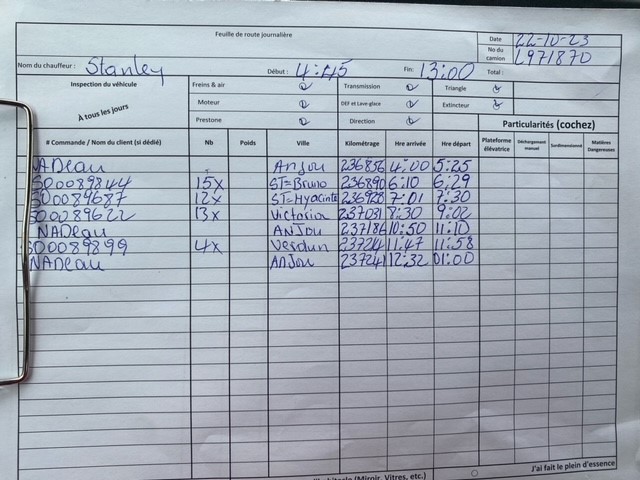 Feuille de route journalière
Date 22-10-23
No du camion L971870
Nom du chauffeur : Stanley Début : 4:45 Fin: 13:00 Total :
Inspection du véhicule Freins & air Transmission Triangle
À tous les jours Moteur DEF et Lave-glace Extincteur
Prestone Direction
Particularités (cochez)
# Commande / Nom du client (si dédié) Nb Poids Ville Kilométrage Hre arrivée Hre départ Plateforme élévatrice Déchargement manuel Surdimensionné Matières Dangereuses
NADeau Anjou 236856 4:00 5:25
SO0089844 15x ST=Bruno 236890 6:10 6:29
SO0089687 12x ST=Hyacinte 236928 7:01 7:30
SO0089622 13x Victoria 237031 8:30 9:02
NADeau ANJOU 237186 10:50 11:10
SO0089899 4x Verdun 237224 11:47 11:58
NADeau ANJOU 237241 12:32 01:00
(Miroir, Vitres, etc.) J'ai fait le plein d'essence